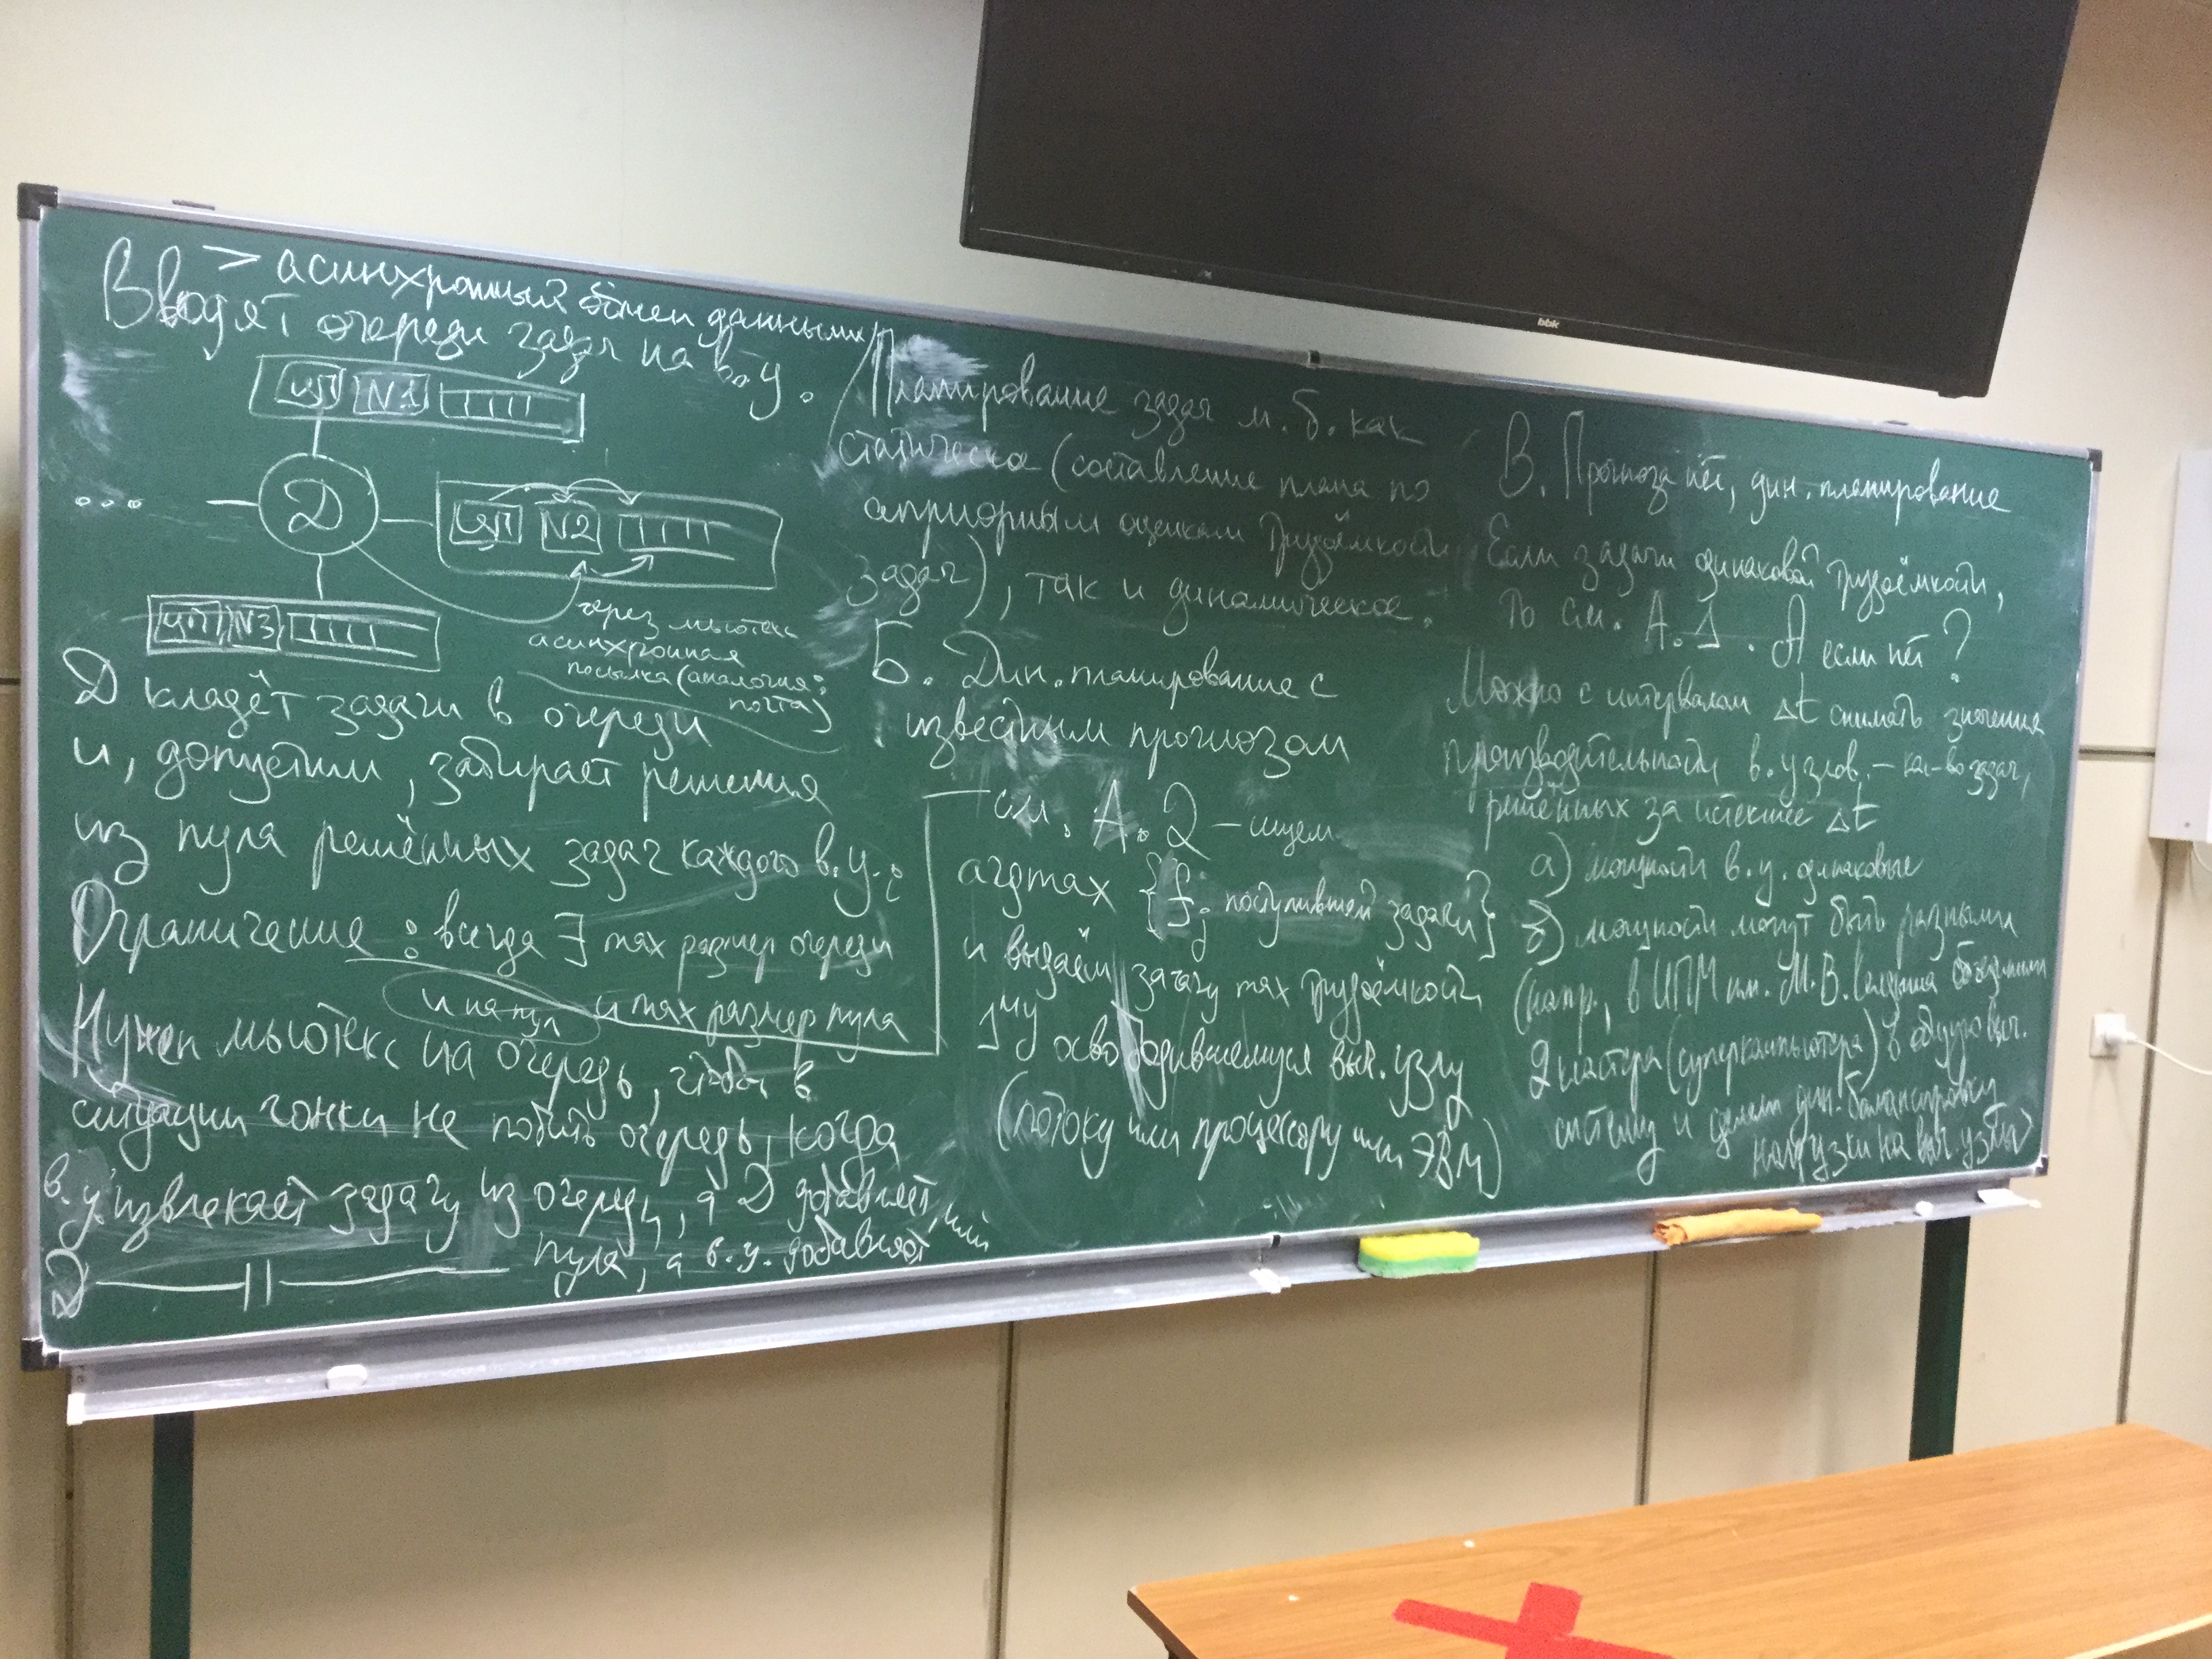 > асинхронный обмен данными
Вводят очереди задач на в.у.
ЦП N1
...
Д
ЦП N2
ЦП N3
через мьютекс
асинхронная
посылка (аналогия:
почта)
Д кладёт задачи в очереди
и, допустим, забирает решения
из пула решённых задач каждого в.у.:
Ограничение: всегда ∃ max размер очереди
и max размер пула
и на пул
Нужен мьютекс на очередь, чтобы в
ситуации гонки не побить очередь, когда
в.у. извлекает задачу из очереди, а Д добавляет, или
Д —— || —— пула, а в.у. добавляет
Планирование задач м.б. как
статическое (составление плана по
априорным оценкам трудоёмкости
задач), так и динамическое.
Б. Дин. планирование с
известным прогнозом
— см. А.2 – ищем
argmax {fj поступившей задачи}
и выдаём задачу max трудоёмкости
1му освободившемуся выч. узлу
(потоку или процессору или ЭВМ)
В. Прогноза нет, дин. планирование
Если задачи одинаковой трудоёмкости,
то см. А.1. А если нет?
Можно с интервалом Δt снимать значения
производительности в. узлов. – кол-во задач,
решённых за истекшее Δt
а) мощности в.у. одинаковые
б) мощности могут быть разными
(напр., в ИПМ им. М.В. Келдыша объединили
2 кластера (суперкомпьютера) в общую выч.
систему и сделали дин. балансировку
нагрузки на выч. узлы)
bbk